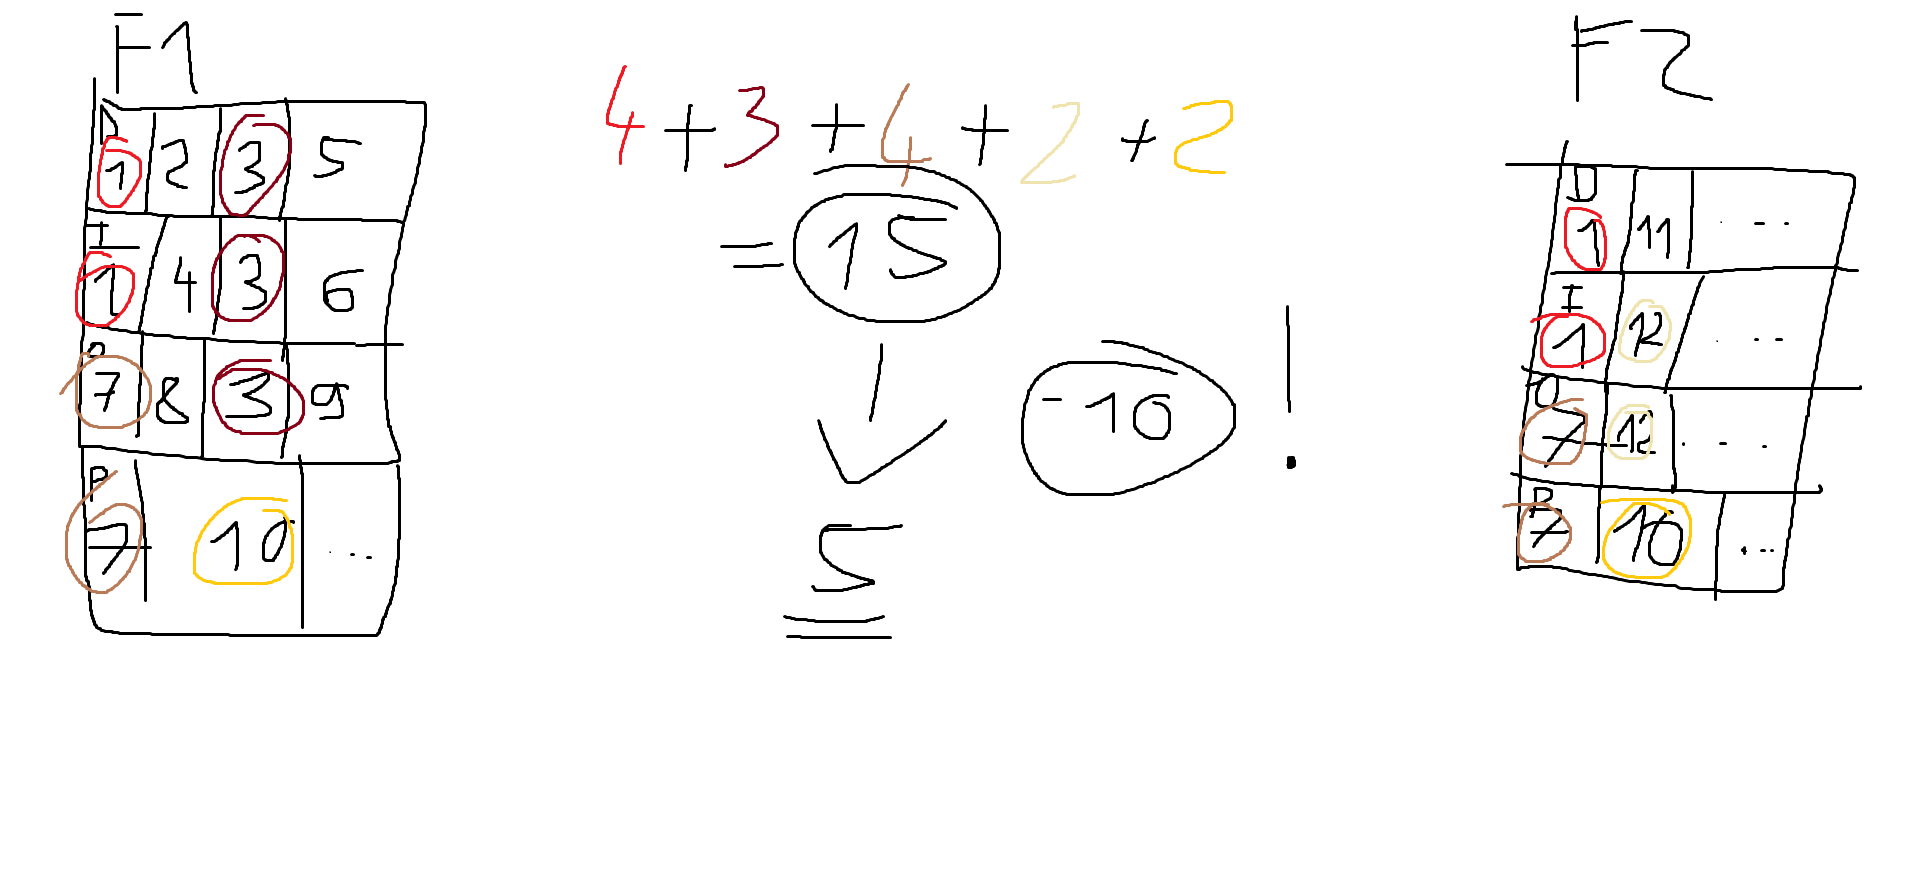 F1
D
1 2 3 5
I
1 4 3 6
O
7 8 3 9
P
7 10 ...
4+3+4+2+2
= 15
-10 !
5
F2
D
1 11 ...
I
1 12 ...
O
7 12 ...
P
7 10 ...